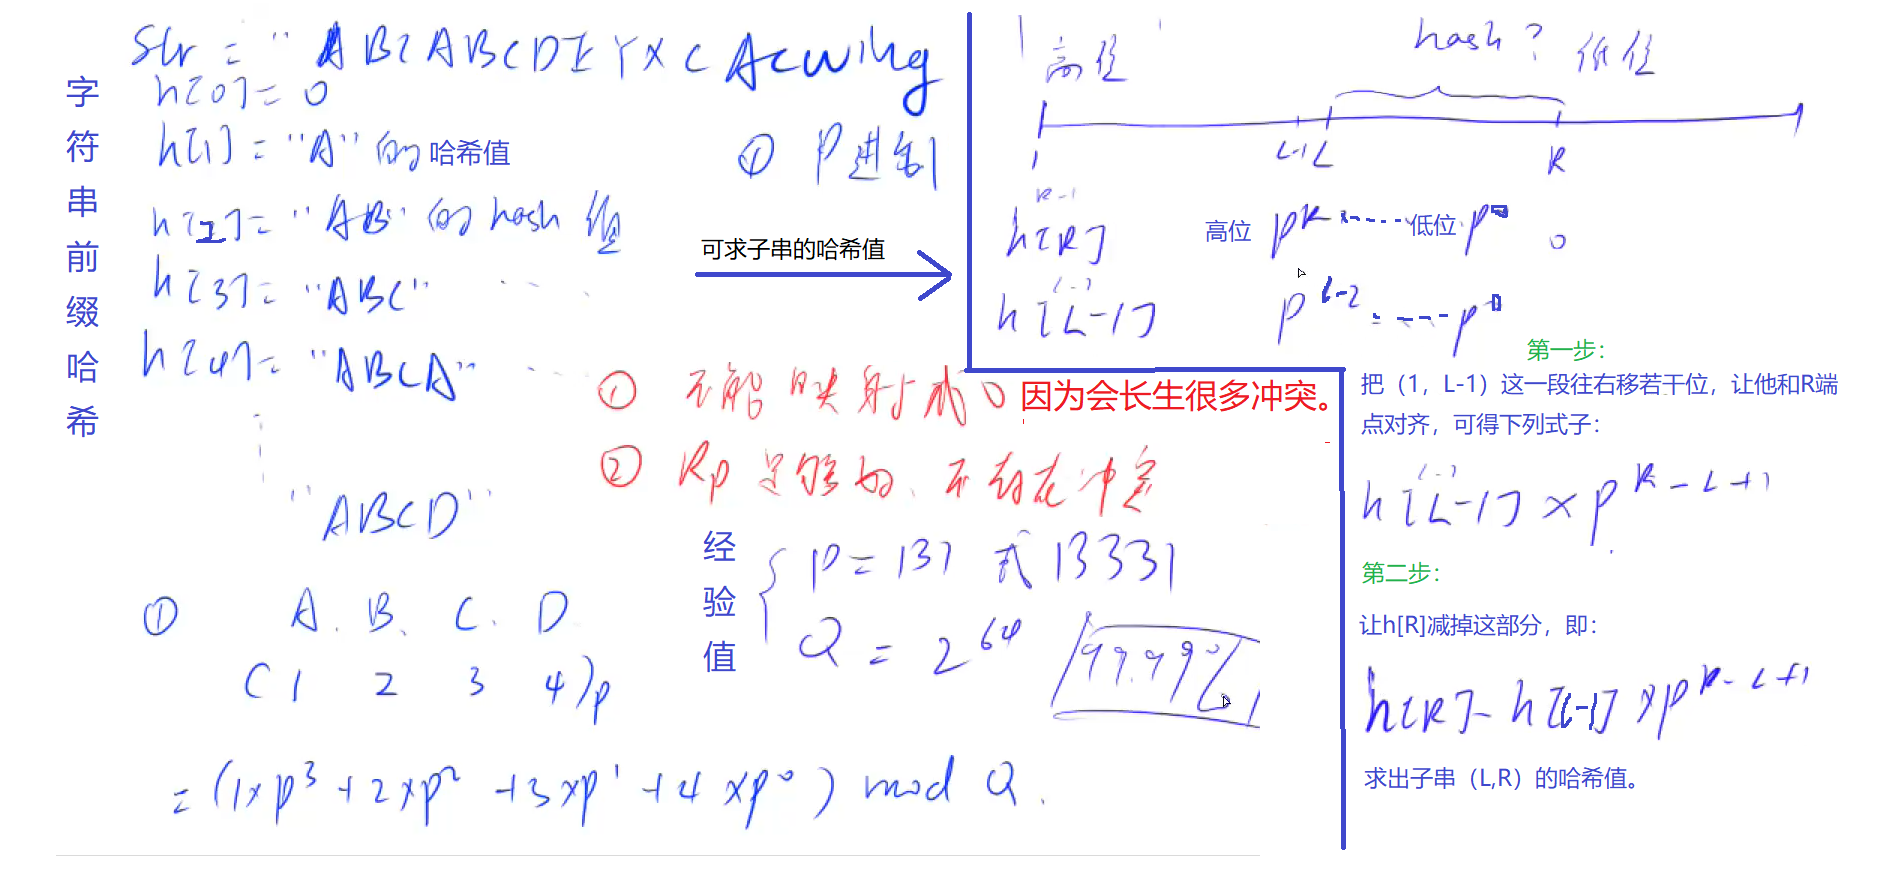 字符串前缀哈希
Str = "ABCABCDEYXCAcwing
h[0] = 0
h[1] = "A" 的 哈希值
h[2] = "AB" 的 hash 值
h[3] = "ABC" ....
h[4] = "ABCA" ....
"ABCD"
① A. B. C. D
(1 2 3 4)p
= (1×p³ + 2×p² + 3×p¹ + 4×p⁰) mod Q.
① P进制
可求子串的哈希值
① 不能映射成0 因为会长生很多冲突。
② Rp足够好、不存在冲突
经验值
P = 131 或 13331
Q = 2⁶⁴ 99.99%
高位 hash? 低位
1 L-1 L R
R-1
h[R] 高位 p 低位 p 0
h[L-1] p^(L-2) ---- p
第一步:
把（1，L-1）这一段往右移若干位，让他和R端
点对齐，可得下列式子:
h[L-1] × p^(R-L+1)
第二步:
让h[R]减掉这部分，即:
h[R] - h[L-1] × p^(R-L+1)
求出子串（L,R）的哈希值。